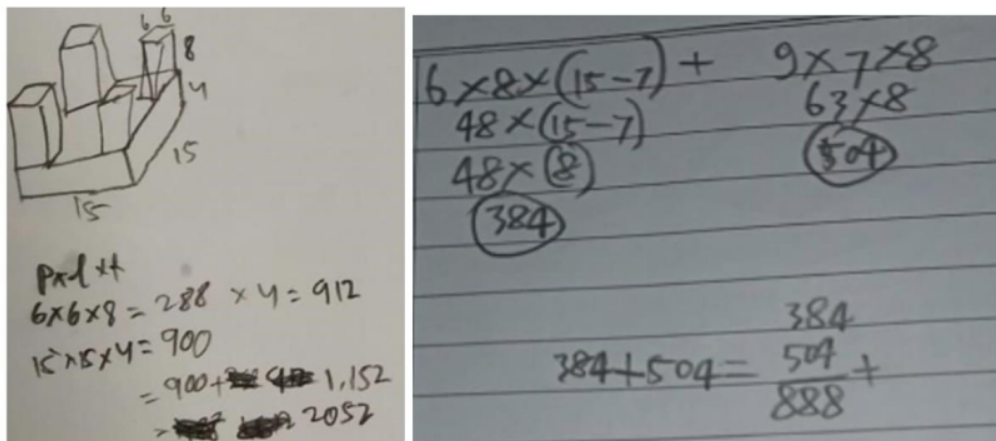 6 6
8
4
15
15
pxlxt
6x6x8 = 288 x 4 = 912
15x15x4 = 900
= 900 + 1.152
= 2052
6x8x(15-7) + 9x7x8
48x(15-7) 63x8
48x(8) 504
384
384
384+504 = 504 +
888